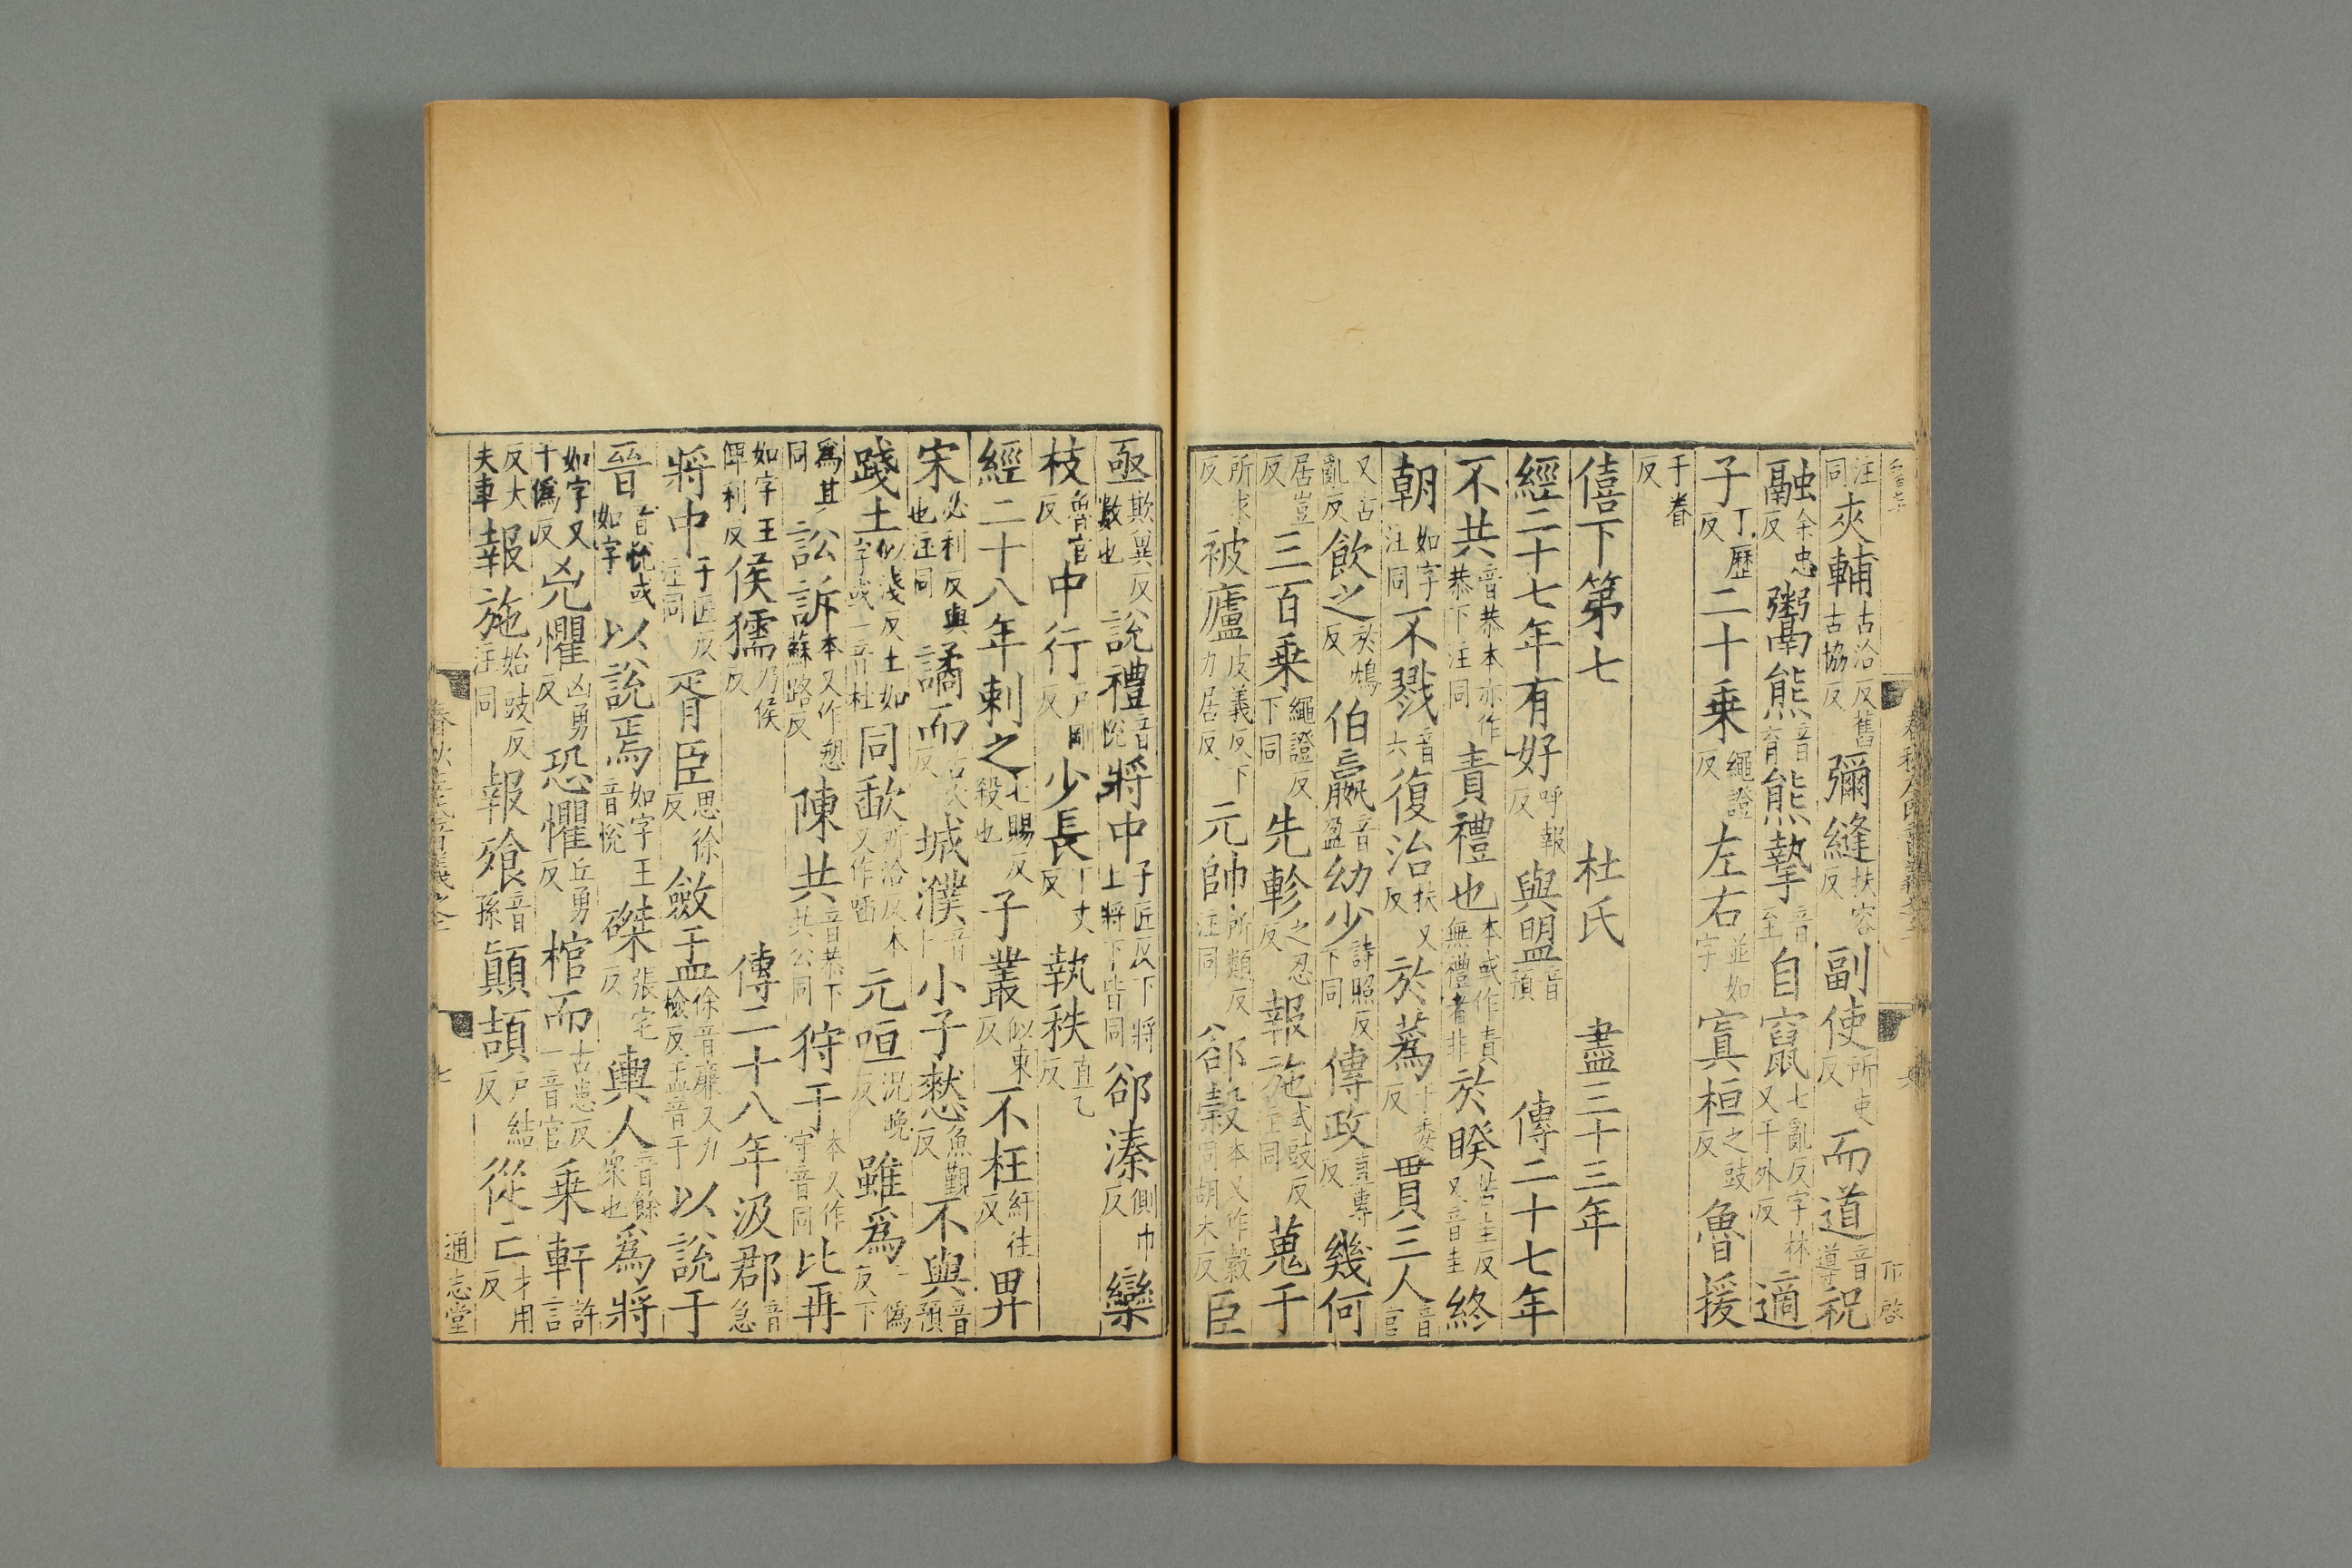 注同夾輔古洽反舊古協反彌縫扶容反副使所吏反而道音導祝
融余忠反鬻熊音育熊摯音至自竄七亂反字林又千外反適
子丁歷反二十乗繩證反左右並如字寘桓之豉反魯援
于眷反
僖下第七 杜氏 盡三十三年
經二十七年有好呼報反與盟音預 傳二十七年
不共音恭本亦作恭下注同責禮也本或作責無禮者非於睽苦圭反又音圭終
朝如字注同不戮音六復治扶又反於蒍于委反貫三人音官
又古亂反飲之於鴆反伯嬴音盈幼少詩照反下同傳政直專反幾何
居豈反三百乗繩證反下同先軫之忍反報施式豉反注同蒐于
所求反被廬皮義反下力居反元帥所類反注同郤縠本又作榖同胡木反臣
亟欺兾反數也說禮音悅將中子匠反下將上將下皆同郤溱側巾反欒
枝魯官反中行戶剛反少長丁丈反執秩直乙反
經二十八年刺之七賜反殺也子叢似東反不枉紆往反畀
宋必利反與也注同譎而古穴反城濮音卜小子憖魚覲反不與音預
踐土似淺反土如字或一音杜同歃所洽反本又作喢元咺況晚反雖爲于僞反下
爲其同訟訴本又作愬蘇路反陳共音恭下共公同狩于本又作守音同比再
如字王俾利反侯獳乃侯反 傳二十八年汲郡音急
將中子匠反注同胥臣思徐反斂盂徐音廉又力檢反盂音于以說于
晉音悅或如字以說焉如字王音悅磔張宅反輿人音餘衆也爲將
如字又于僞反兇懼凶勇反恐懼丘勇反棺而古患反一音官乗軒許言
反大夫車報施始豉反注同報飱音孫顛頡戶結反從亡才用反
通志堂